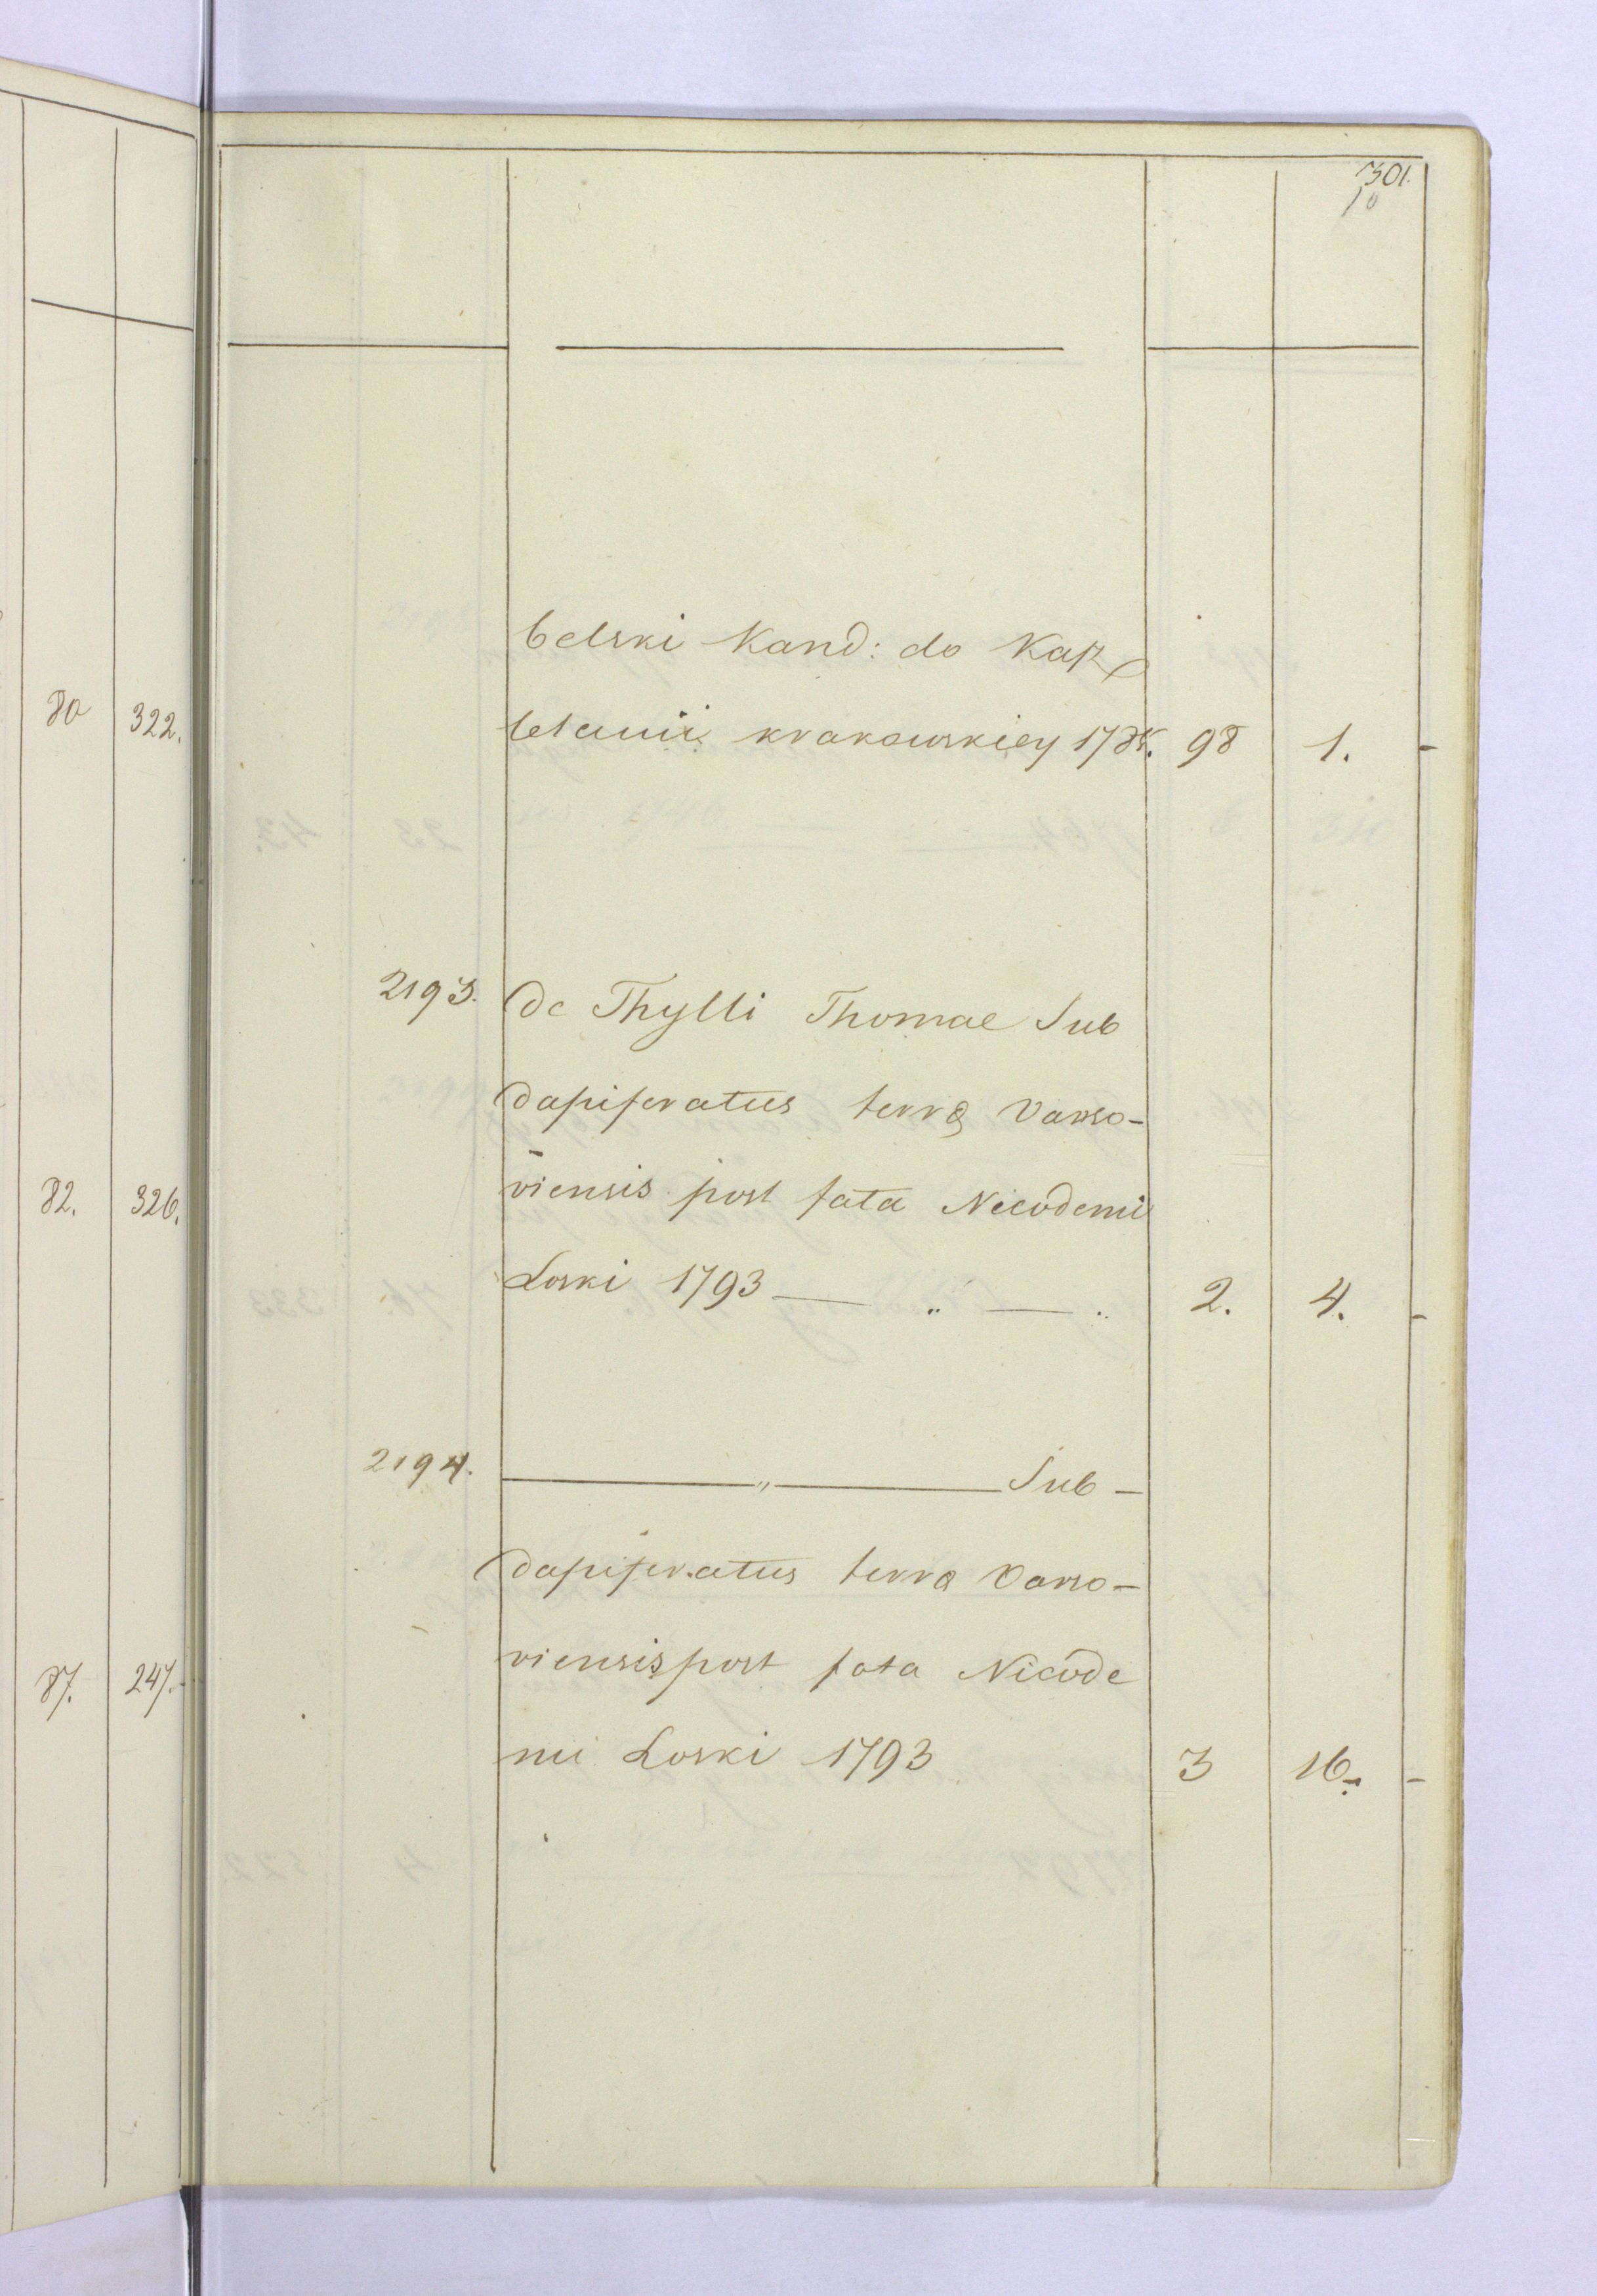 301.
10
80 322.
82. 326.
87. 247.
belski Kand: do Kasz
telanii krakowskiey 98 1. -
2193. de Thylli Thomae Sub
dapiferatus terrę Varso-
viensis post fata Nicodemi
Loski 1793 — " — " 2. 4. -
2194. — " — Sub -
dapiferatus terra Varso-
viensis post fata Nicode
mi Loski 1793 3 16. -